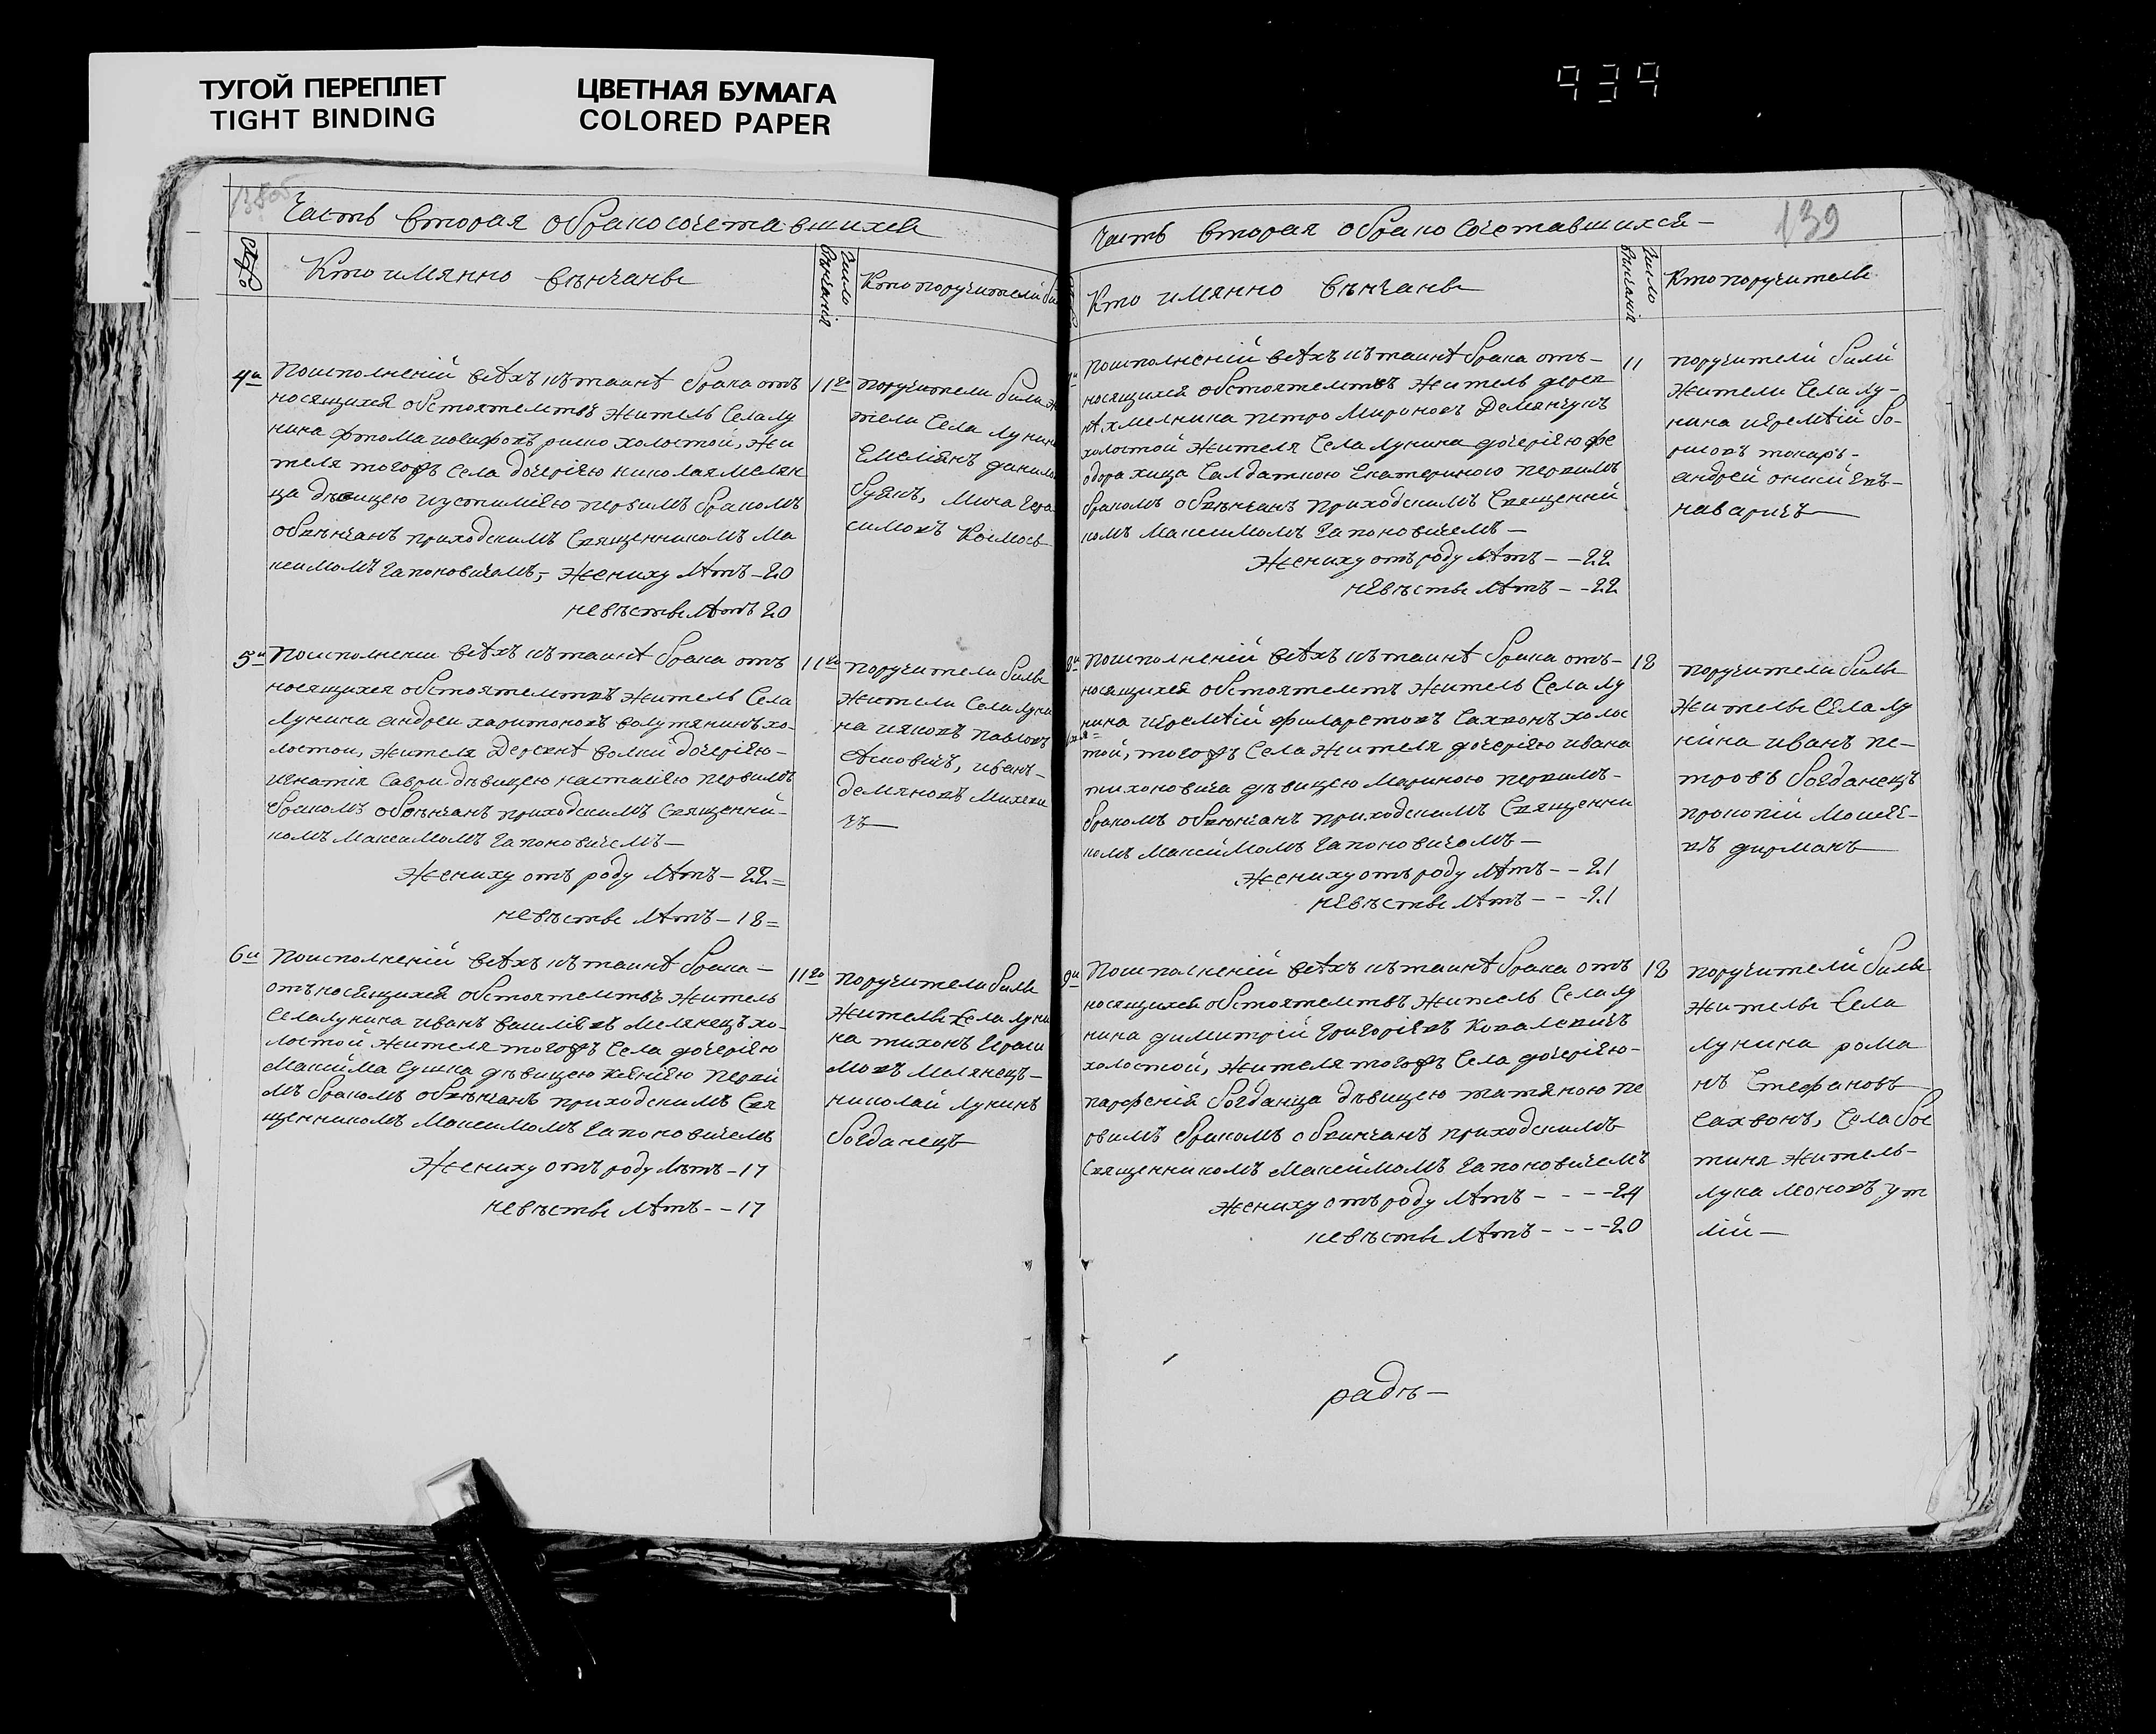 ТУГОЙ ПЕРЕПЛЕТ
TIGHT BINDING
ЦВЕТНАЯ БУМАГА
COLORED PAPER
939
Часть вторая обракосочетавшихся
Кто имянно вѣнчаны
Число вѣнчанія
Кто поручители
4й
Поисполненій всѣхъ къ таинѣ брака отъ
носящихся обстоятелствъ житель села лу
нина фтома иосифовъ холостой, жи
теля тогожъ села дочерію николая мелян
ца дѣвицею иустиніею первимъ бракомъ
обвѣнчанъ приходскимъ священникомъ ма
ксимомъ гапоновичомъ, жениху лѣтъ - 20
невѣстѣ лѣтъ 20
11го
поручители били жи
тели села лунина
Емелиянъ данилов
буякъ, мина гера
симовъ
5й
Поисполнении всѣхъ къ таинѣ брака отъ
носящихся обстоятелствъ житель села
лунина андрей харитоновъ хо
лостой, жителя деревнѣ волки дочерію
игнатія саври дѣвицею настасіею первимъ
бракомъ обвѣнчанъ приходскимъ священни-
комъ максимомъ гапоновичемъ —
жениху отъ роду лѣтъ - 22 =
невѣстѣ лѣтъ - 18 =
11го
поручители били
жители села луни
на иаковъ павловъ
иванъ-
демяновъ
6й
Поисполненій всѣхъ къ таинѣ брака —
отъносящихся обстоятелствъ житель
села лунина иванъ василіевъ мелянецъ хо-
лостой жителя тогожъ села дочерію
максима сушка дѣвицею ксеніею перви
мъ бракомъ обвѣнчанъ приходскимъ свя
щенникомъ максимомъ гапоновичемъ
жениху отъ роду лѣтъ - 17
невѣстѣ лѣтъ - - 17
11го
поручители били
жители села луни
на тихонъ гераси
мовъ мелянецъ -
николай лукинъ
богданецъ
Часть вторая обракосочетавшихся —
139
Кто имянно вѣнчаны
Число вѣнчанія
Кто поручители
поисполненій всѣхъ къ таинѣ брака отъ-
носящихся обстоятелствъ житель дерев
нѣ хмелника петро мироновъ демянчукъ
холостой жителя села лунина дочерію фе
одора хица салдаткою екатериною первимъ
бракомъ обвѣнчанъ приходскимъ священни
комъ максимомъ гапоновичемъ —
жениху отъ роду лѣтъ - - 22
невѣстѣ лѣтъ - - 22
11
поручители били
жители села лу-
нина иеремѣй бо-
рисовъ токарь -
андрей
наваричъ
8й
Поисполненій всѣхъ къ таинѣ брака отъ-
носящихся обстоятелствъ житель села лу
нина иеремѣй филаретовъ сахвонъ холос
той, тогожъ села жителя дочерію ивана
тихоновича дѣвицею мариною первимъ-
бракомъ обвѣнчанъ приходскимъ священни
комъ максимомъ гапоновичомъ —
жениху отъ роду лѣтъ - - 21
невѣстѣ лѣтъ - - - 21
18
поручители били
жители села лу
нина иванъ пе-
тровъ богданецъ
прокопій моисее-
въ дирманъ
9й
Поисполненій всѣхъ къ таинѣ брака отъ
носящихся обстоятелствъ житель села лу
нина димитрій григоріевъ ковалевичъ
холостой, жителя тогожъ села дочерію-
парфенія богданца дѣвицею татяною пе
рвимъ бракомъ обвинчанъ приходскимъ
священникомъ максимомъ гапоновичемъ
жениху отъ роду лѣтъ - - - - 24
невѣстѣ лѣтъ - - - - 20
18
поручители били
жители села
лунина рома
нъ стефановъ
сахвонъ, села бос
тиня житель-
лука леоновъ